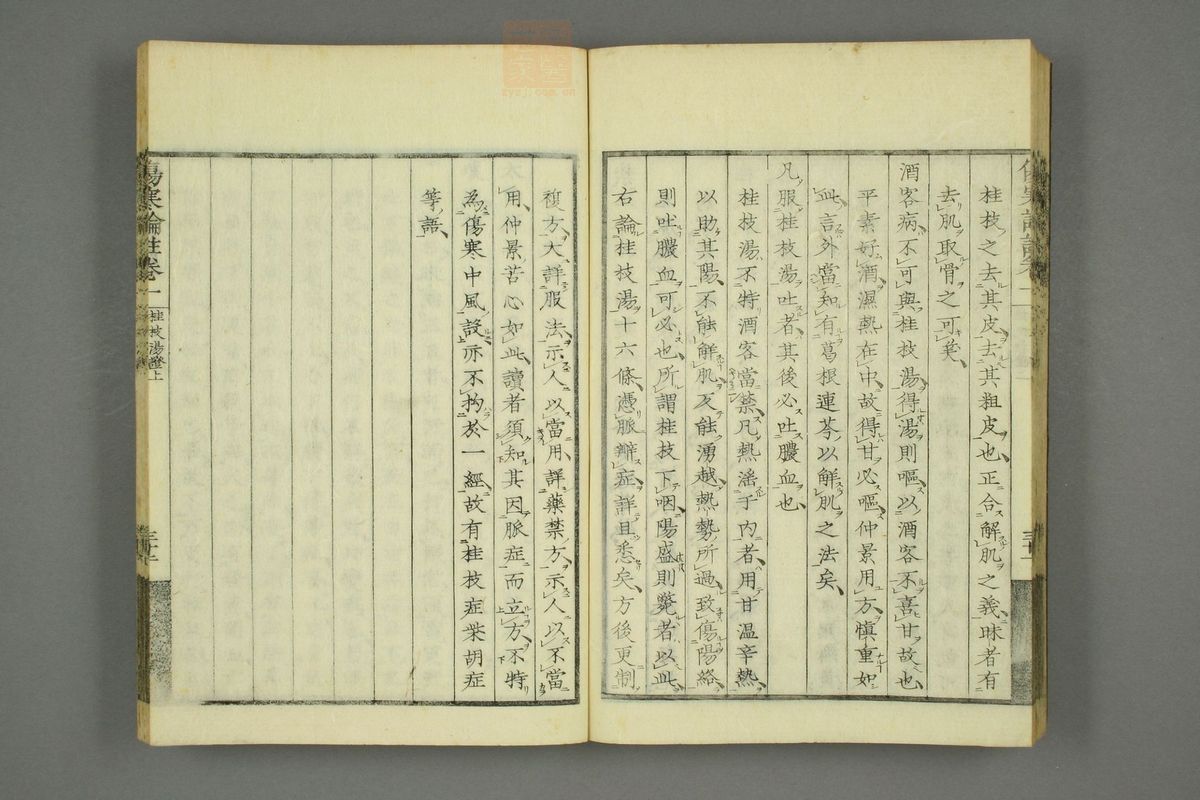 桂枝之去其皮去其粗皮也正合解肌之義昧者有
去肌取骨之可笑
酒客病不可與桂枝湯得湯則嘔以酒客不喜甘故也
平素好酒濕熱在中故得甘必嘔仲景用方慎重如
此言外當知有葛根連芩以解肌之法矣
凡服桂枝湯吐者其後必吐膿血也
桂枝湯不特酒客當禁凡熱淫于內者用甘温辛熱
以助其陽不能解肌反能湧越熱勢所過致傷陽絡
則吐膿血可必也所謂桂枝下咽陽盛則斃者以此
右論桂枝湯十六條憑脈辯症詳且悉矣方後更制
複方大詳服法示人以當用詳藥禁方示人以不當
用仲景苦心如此讀者須知其因脈症而立方不特
為傷寒中風設亦不拘於一經故有桂枝症柴胡症
等語
傷寒論註卷一
桂枝湯證上
三十二